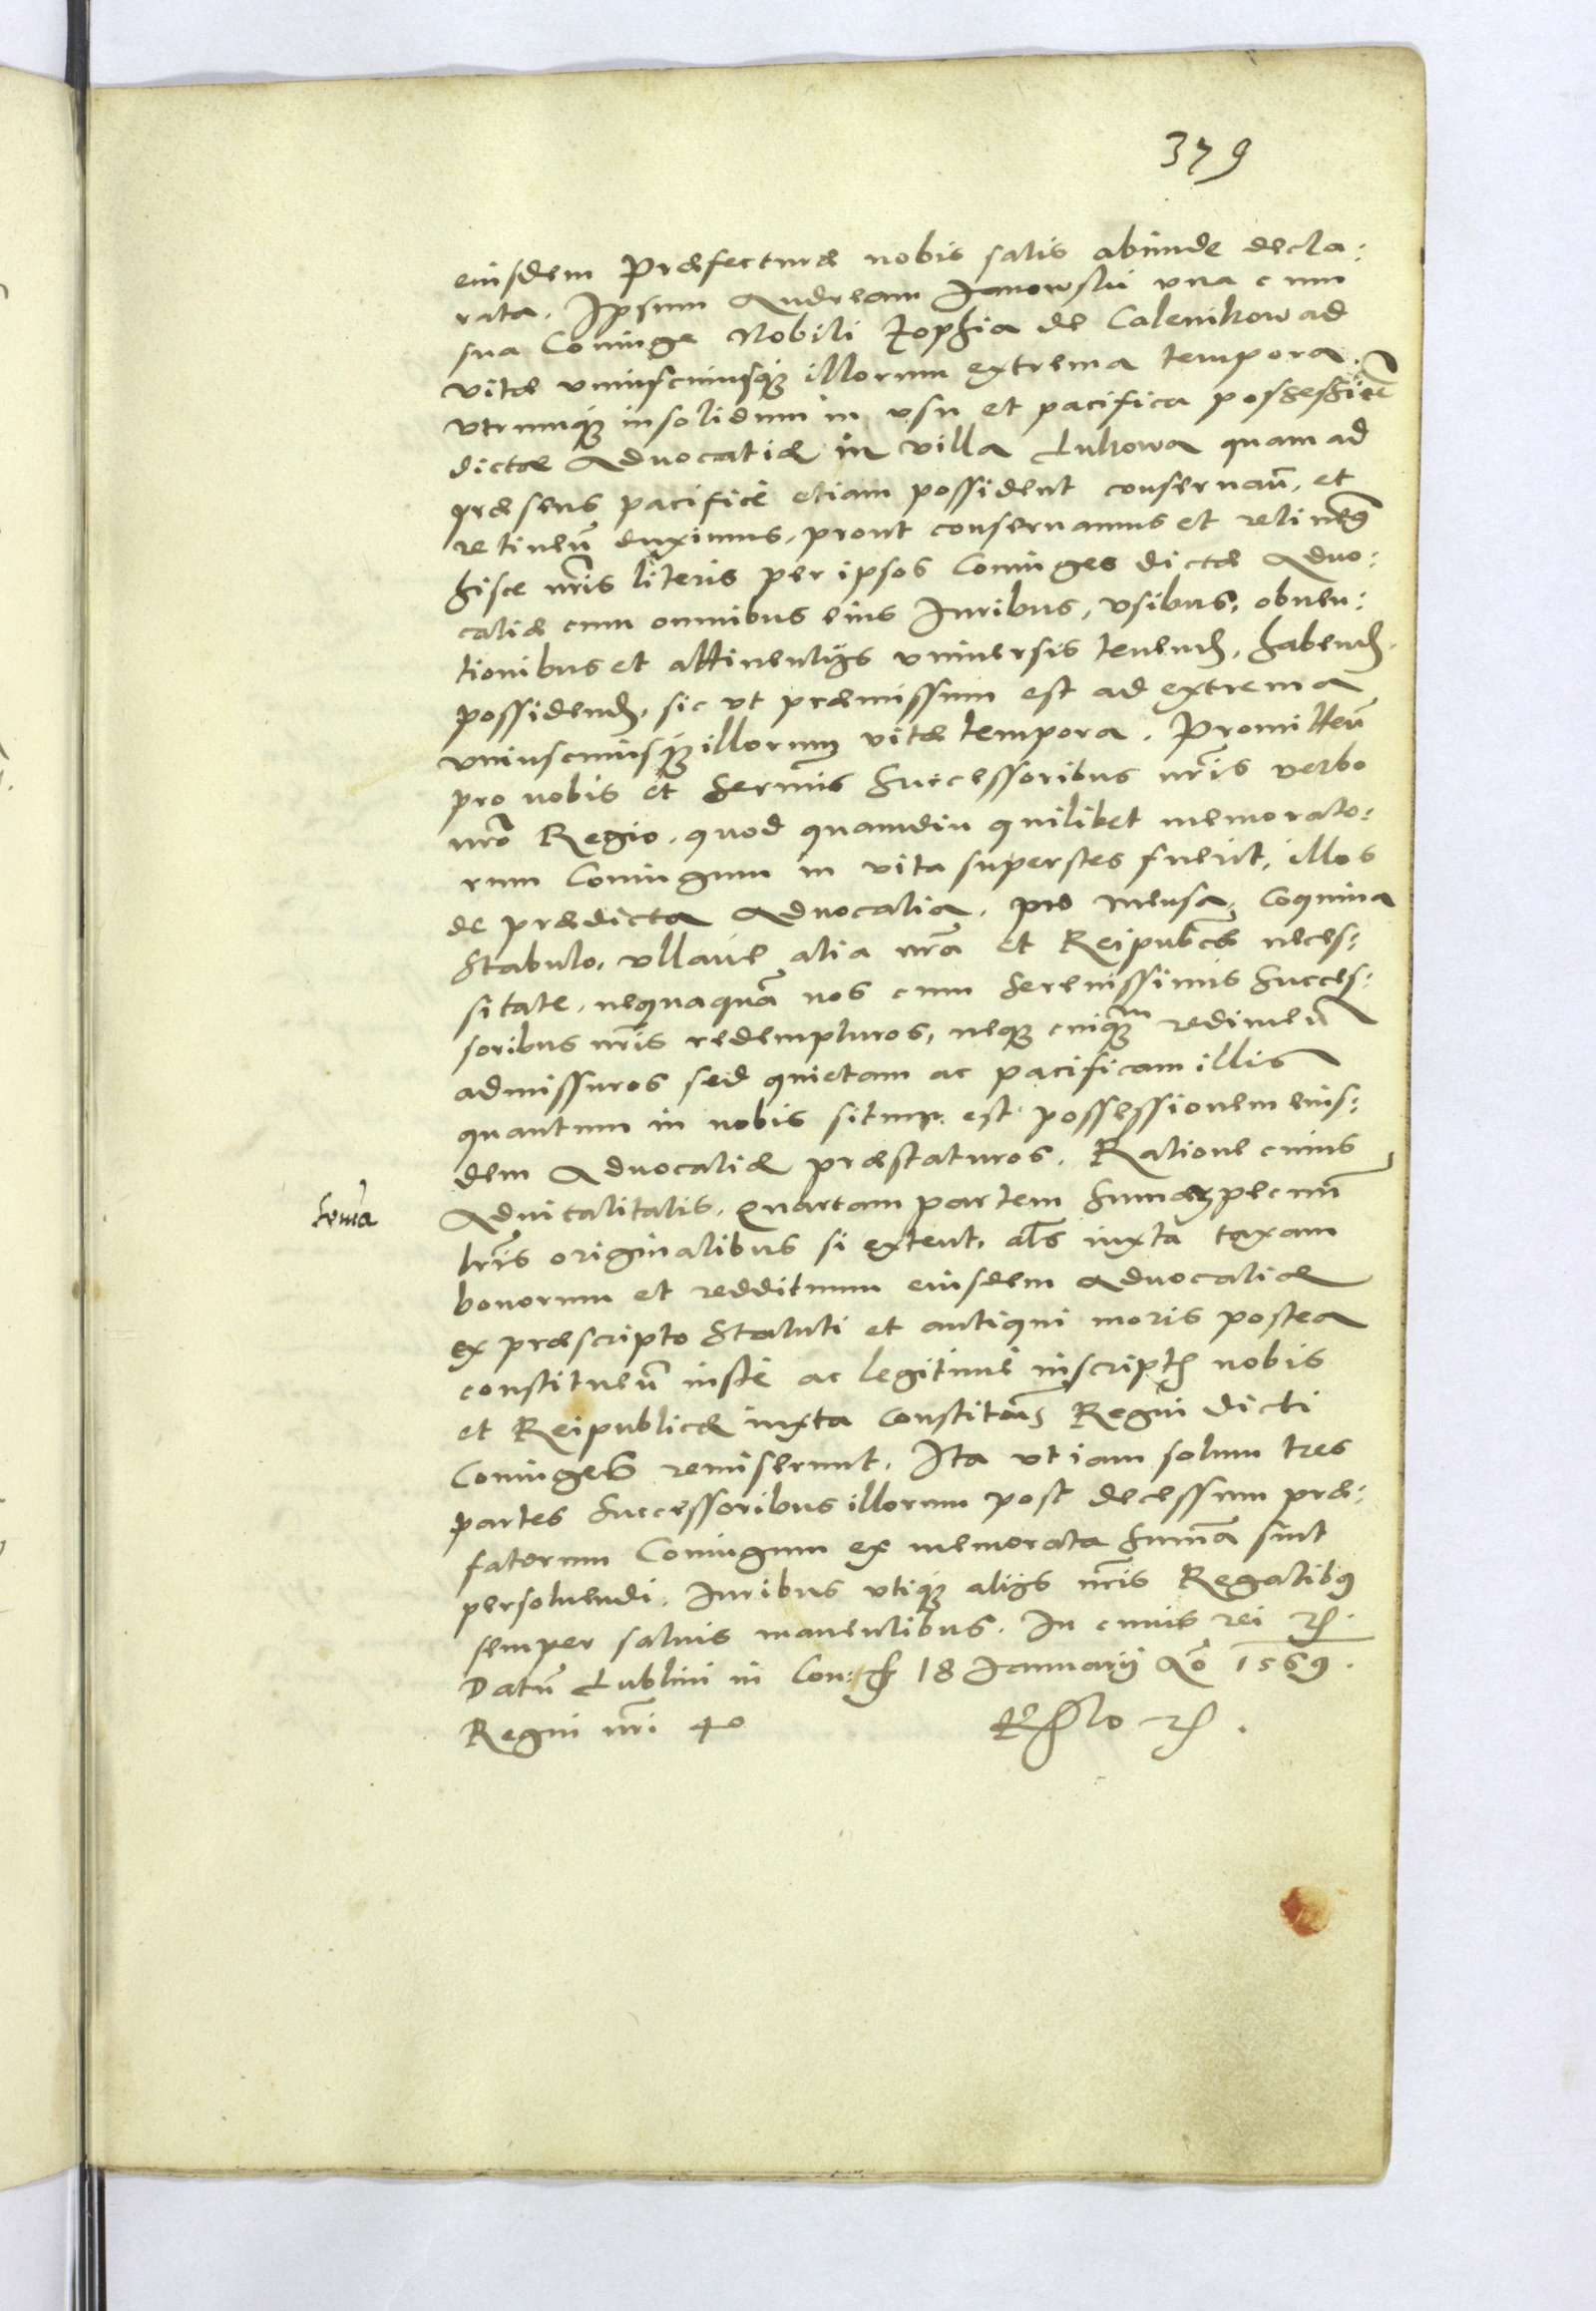 379
eiusdem Præfecturæ nobis satis abunde decla:
rata. Ipsum Andream Janowski vna cum
sua Coniuge Nobili Zophia de Calenikow ad
vitæ vniuscuiusq; illorum extrema tempora.
vtrumq; insolidum in vsu et pacifica possessiōē
dictæ Aduocatiæ in villa Lukowa quam ad
præsens pacificè etiam possident conseruañ, et
retineñ duximus, prout conseruamus et retinem9
hisce nr̃is literis per ipsos Coniuges dictæ Aduo:
catiæ cum omnibus eius Iuribus, vsibus, obuen:
tionibus et attinentijs vniuersis tenend, habend,
possidend, sic vt præmissum est ad extrema
vniuscuiusq; illorum vitæ tempora. Promitteñ
pro nobis et Serm̃is Successoribus nr̃is verbo
nr̃o Regio. quod quamdiu quilibet memorato:
rum Coniugum in vita superstes fuerit, illos
de prædicta Aduocatia. pro mensa, Coquina
Stabulo, vllaue alia nr̃a et Reipublcæ neces:
sitate, nequaquã nos cum Serenissimis Succes:
soribus nr̃is redempturos, neq; cuiq;m redimeñ
admissuros sed quietam ac pacificam illis
quantum in nobis situm est possessionem eius:
dem Aduocatiæ præstaturos. Ratione cuius
Aduitalitatis. Quartam partem Sum̃æ pecuñ
lr̃is originalibus si extent, als iuxta taxam
bonorum et reddituum eiusdem Aduocatiæ
ex præscripto Statuti et antiqui moris postea
constitueñ iustè ac legitimè inscript nobis
et Reipublicæ iuxta Constitoñ Regni dicti
Coniuges remiserunt. Ita vt iam solum tres
partes Successoribus illorum post decessum præ:
fatorum Coniugum ex memorata Sum̃a sint
persoluendi. Iuribus vtiq; alijs nr̃is Regalib9
semper saluis manentibus. In cuius rei etc.
Datũ Lublini in Con: 18 Januarij Ao 1569.
Regni nr̃i 40